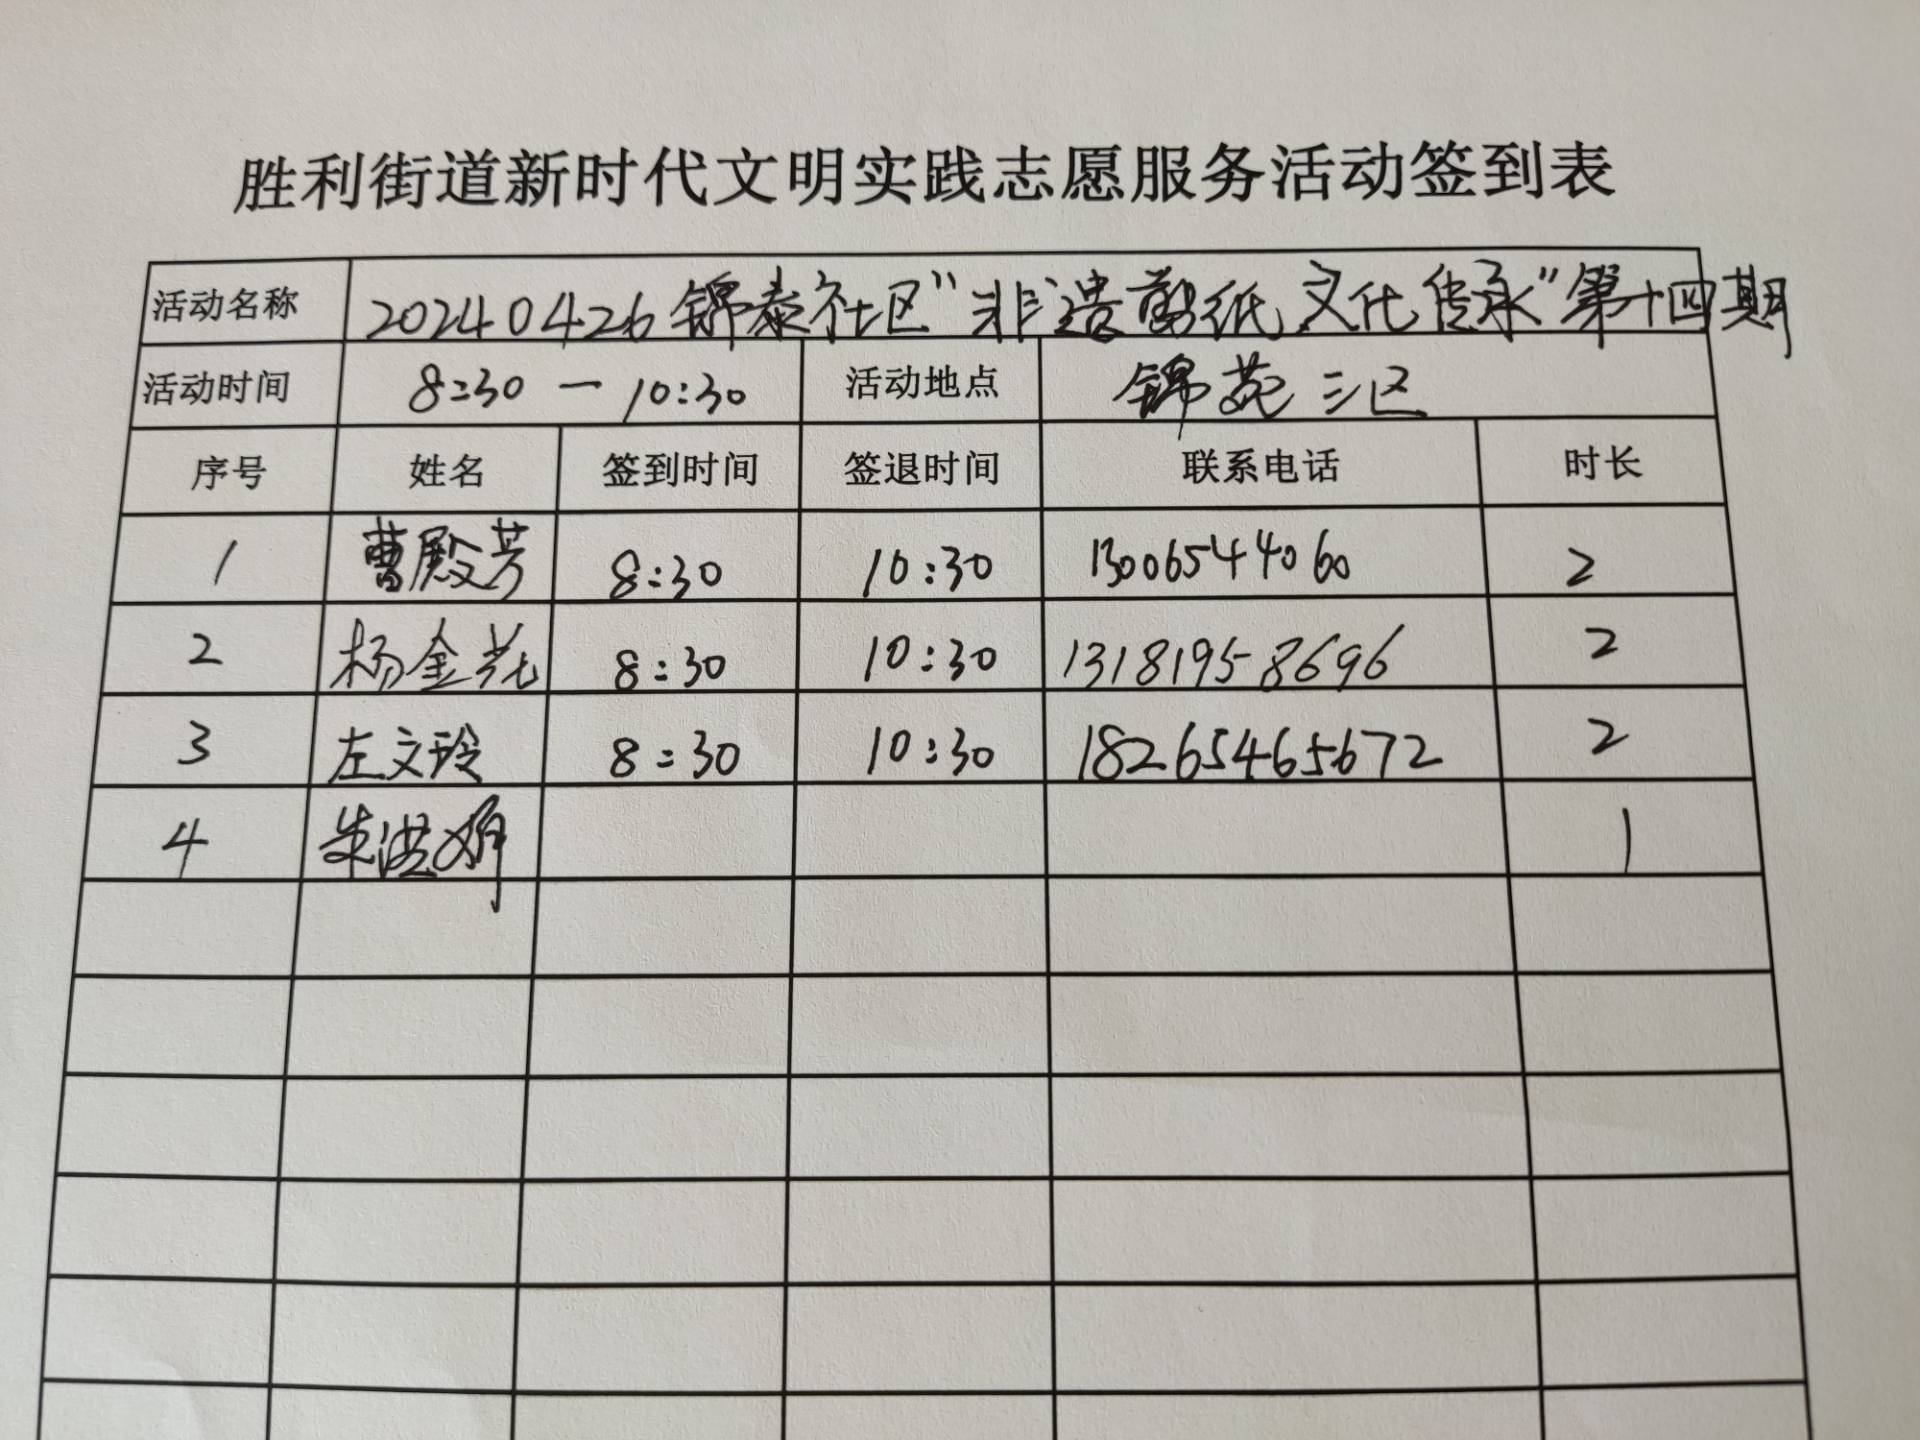 胜利街道新时代文明实践志愿服务活动签到表
活动名称 20240426锦泰社区"非遗剪纸文化传承"第十四期
活动时间 8:30 — 10:30 活动地点 锦苑三区
序号 姓名 签到时间 签退时间 联系电话 时长
1 曹殿芳 8:30 10:30 13006544060 2
2 杨金 8:30 10:30 13181958696 2
3 左文玲 8:30 10:30 18265465672 2
4 朱洪娟 1